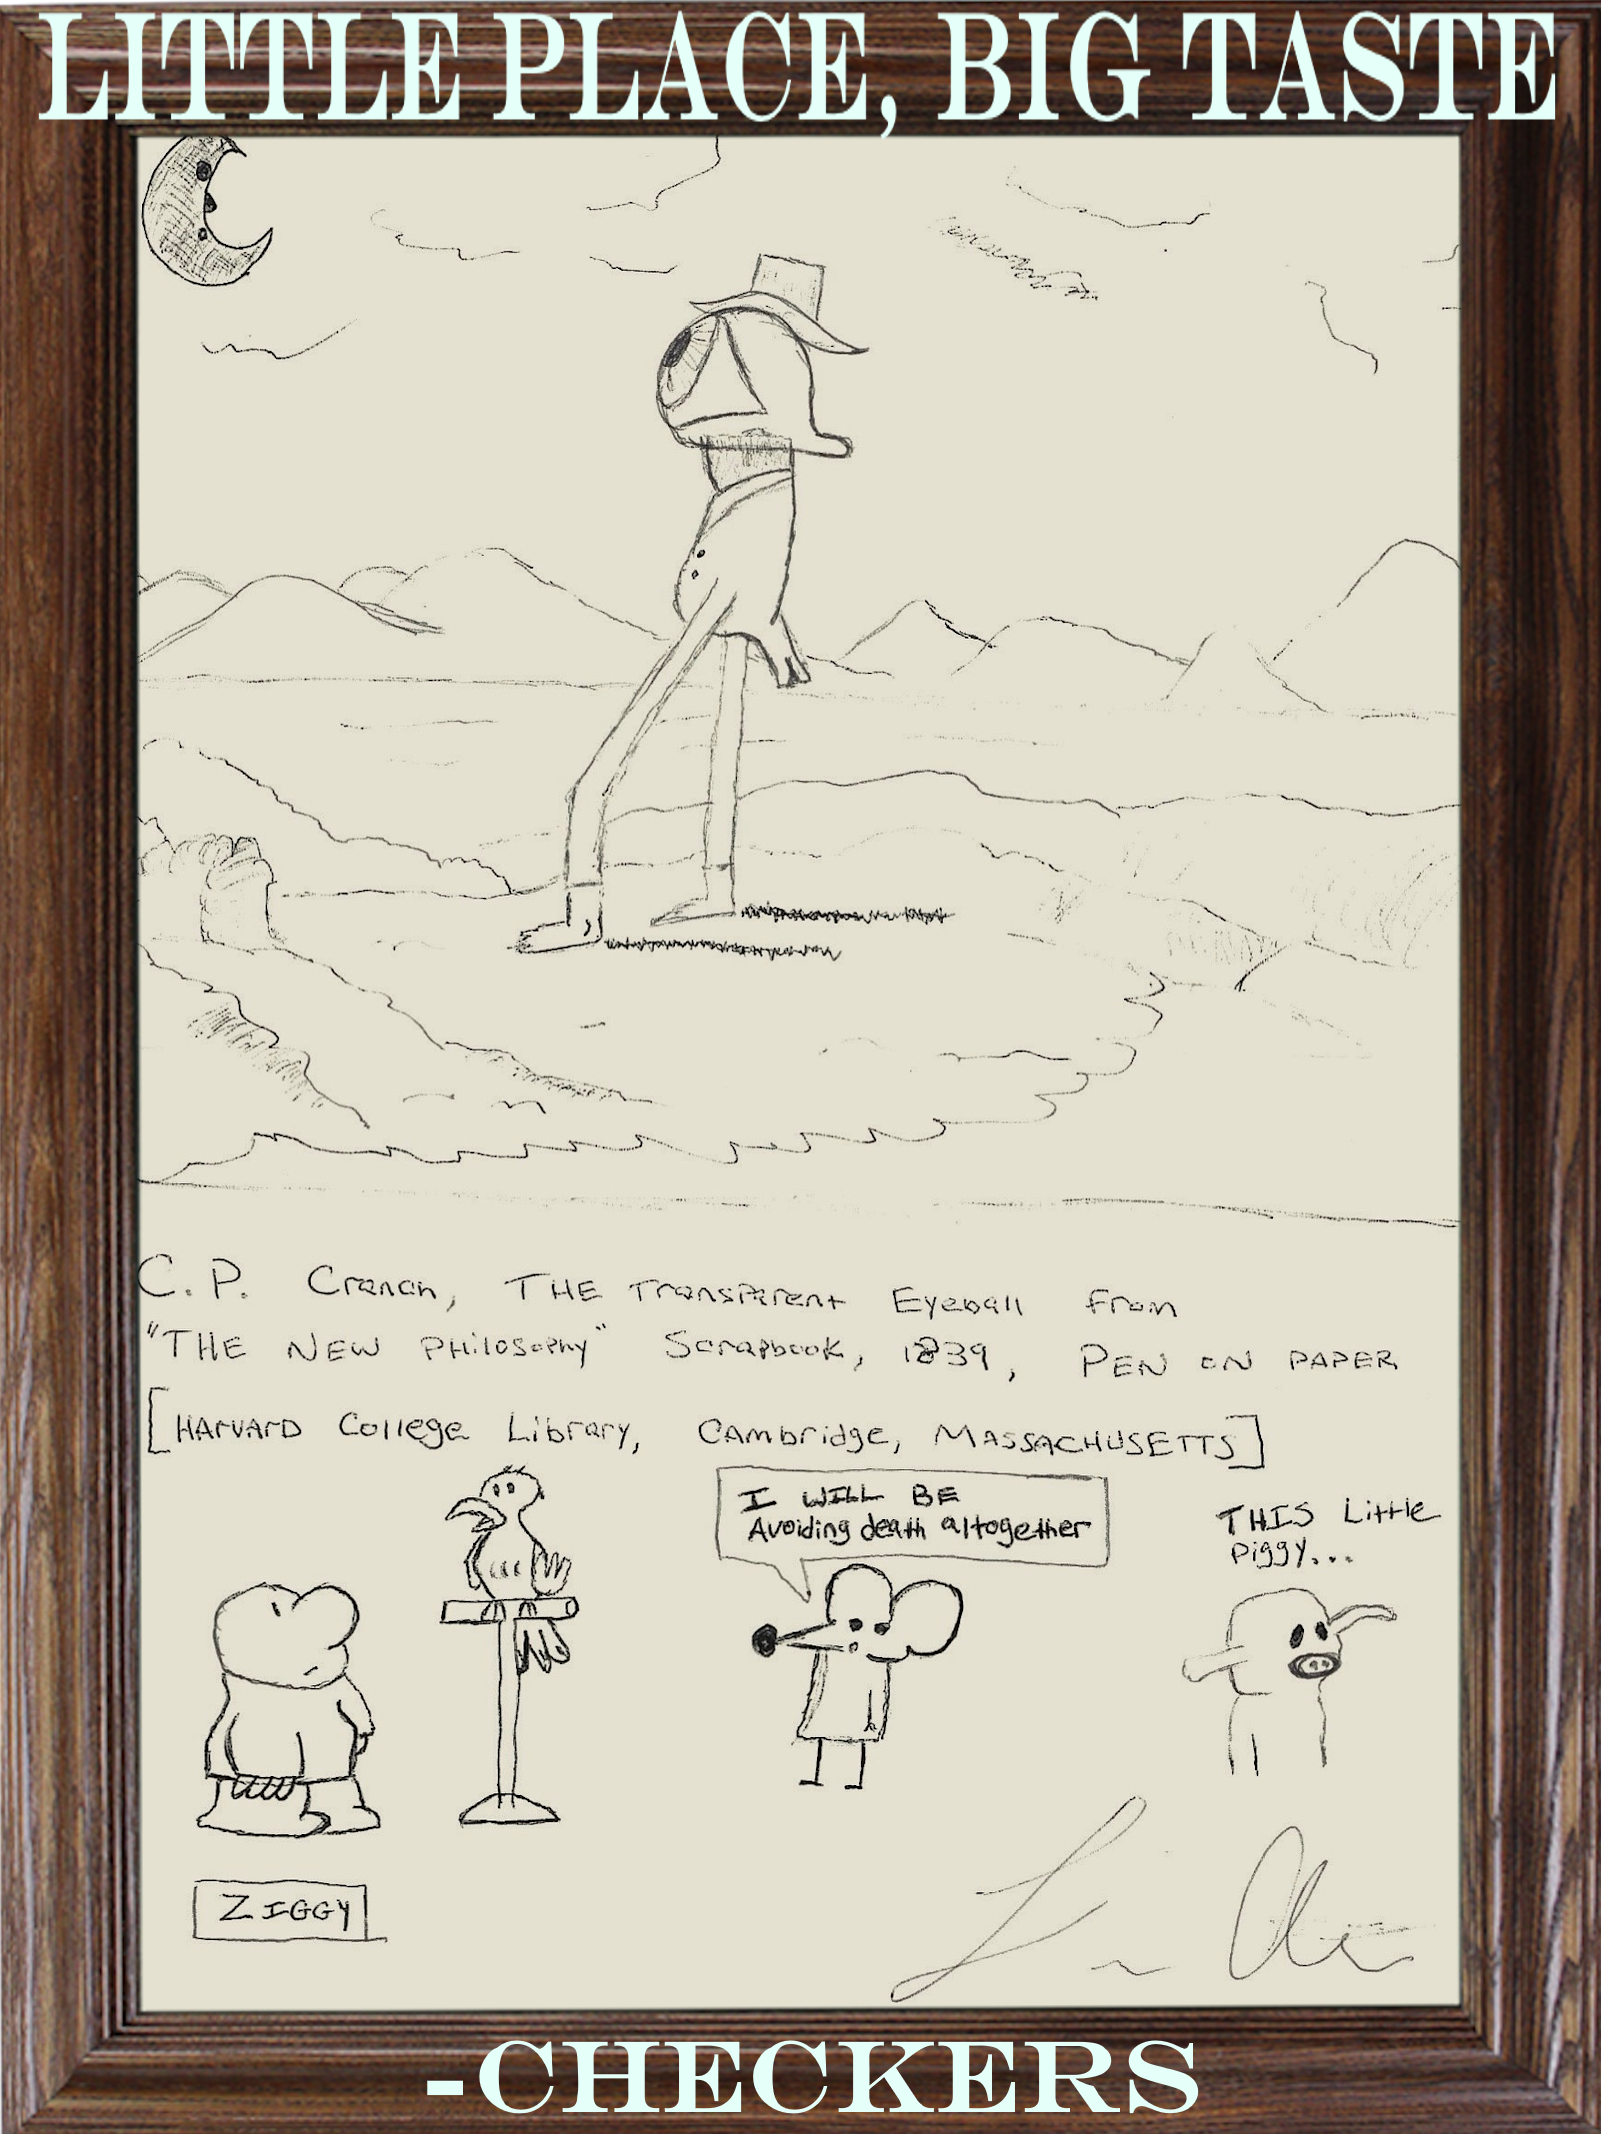 LITTLE PLACE, BIG TASTE
C.P. Cranch, THE Transparent Eyeball From
"THE NEW PHilosophy" Scrapbook, 1839, PEN ON PAPER
[HArVArD College Library, CAmbridge, MASSACHUSETTS]
I WILL BE
Avoiding death altogether
THIS Little
Piggy...
ZIGGY
-CHECKERS